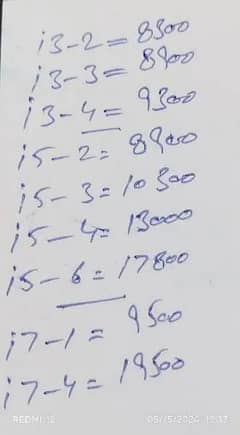 i3-2= 8300
i3-3= 8900
i3-4= 9300
i5-2= 8900
i5-3= 10300
i5-4= 13000
i5-6= 17800
i7-1= 9500
i7-4= 19500
REDMI 12
05/15/2024 12:37